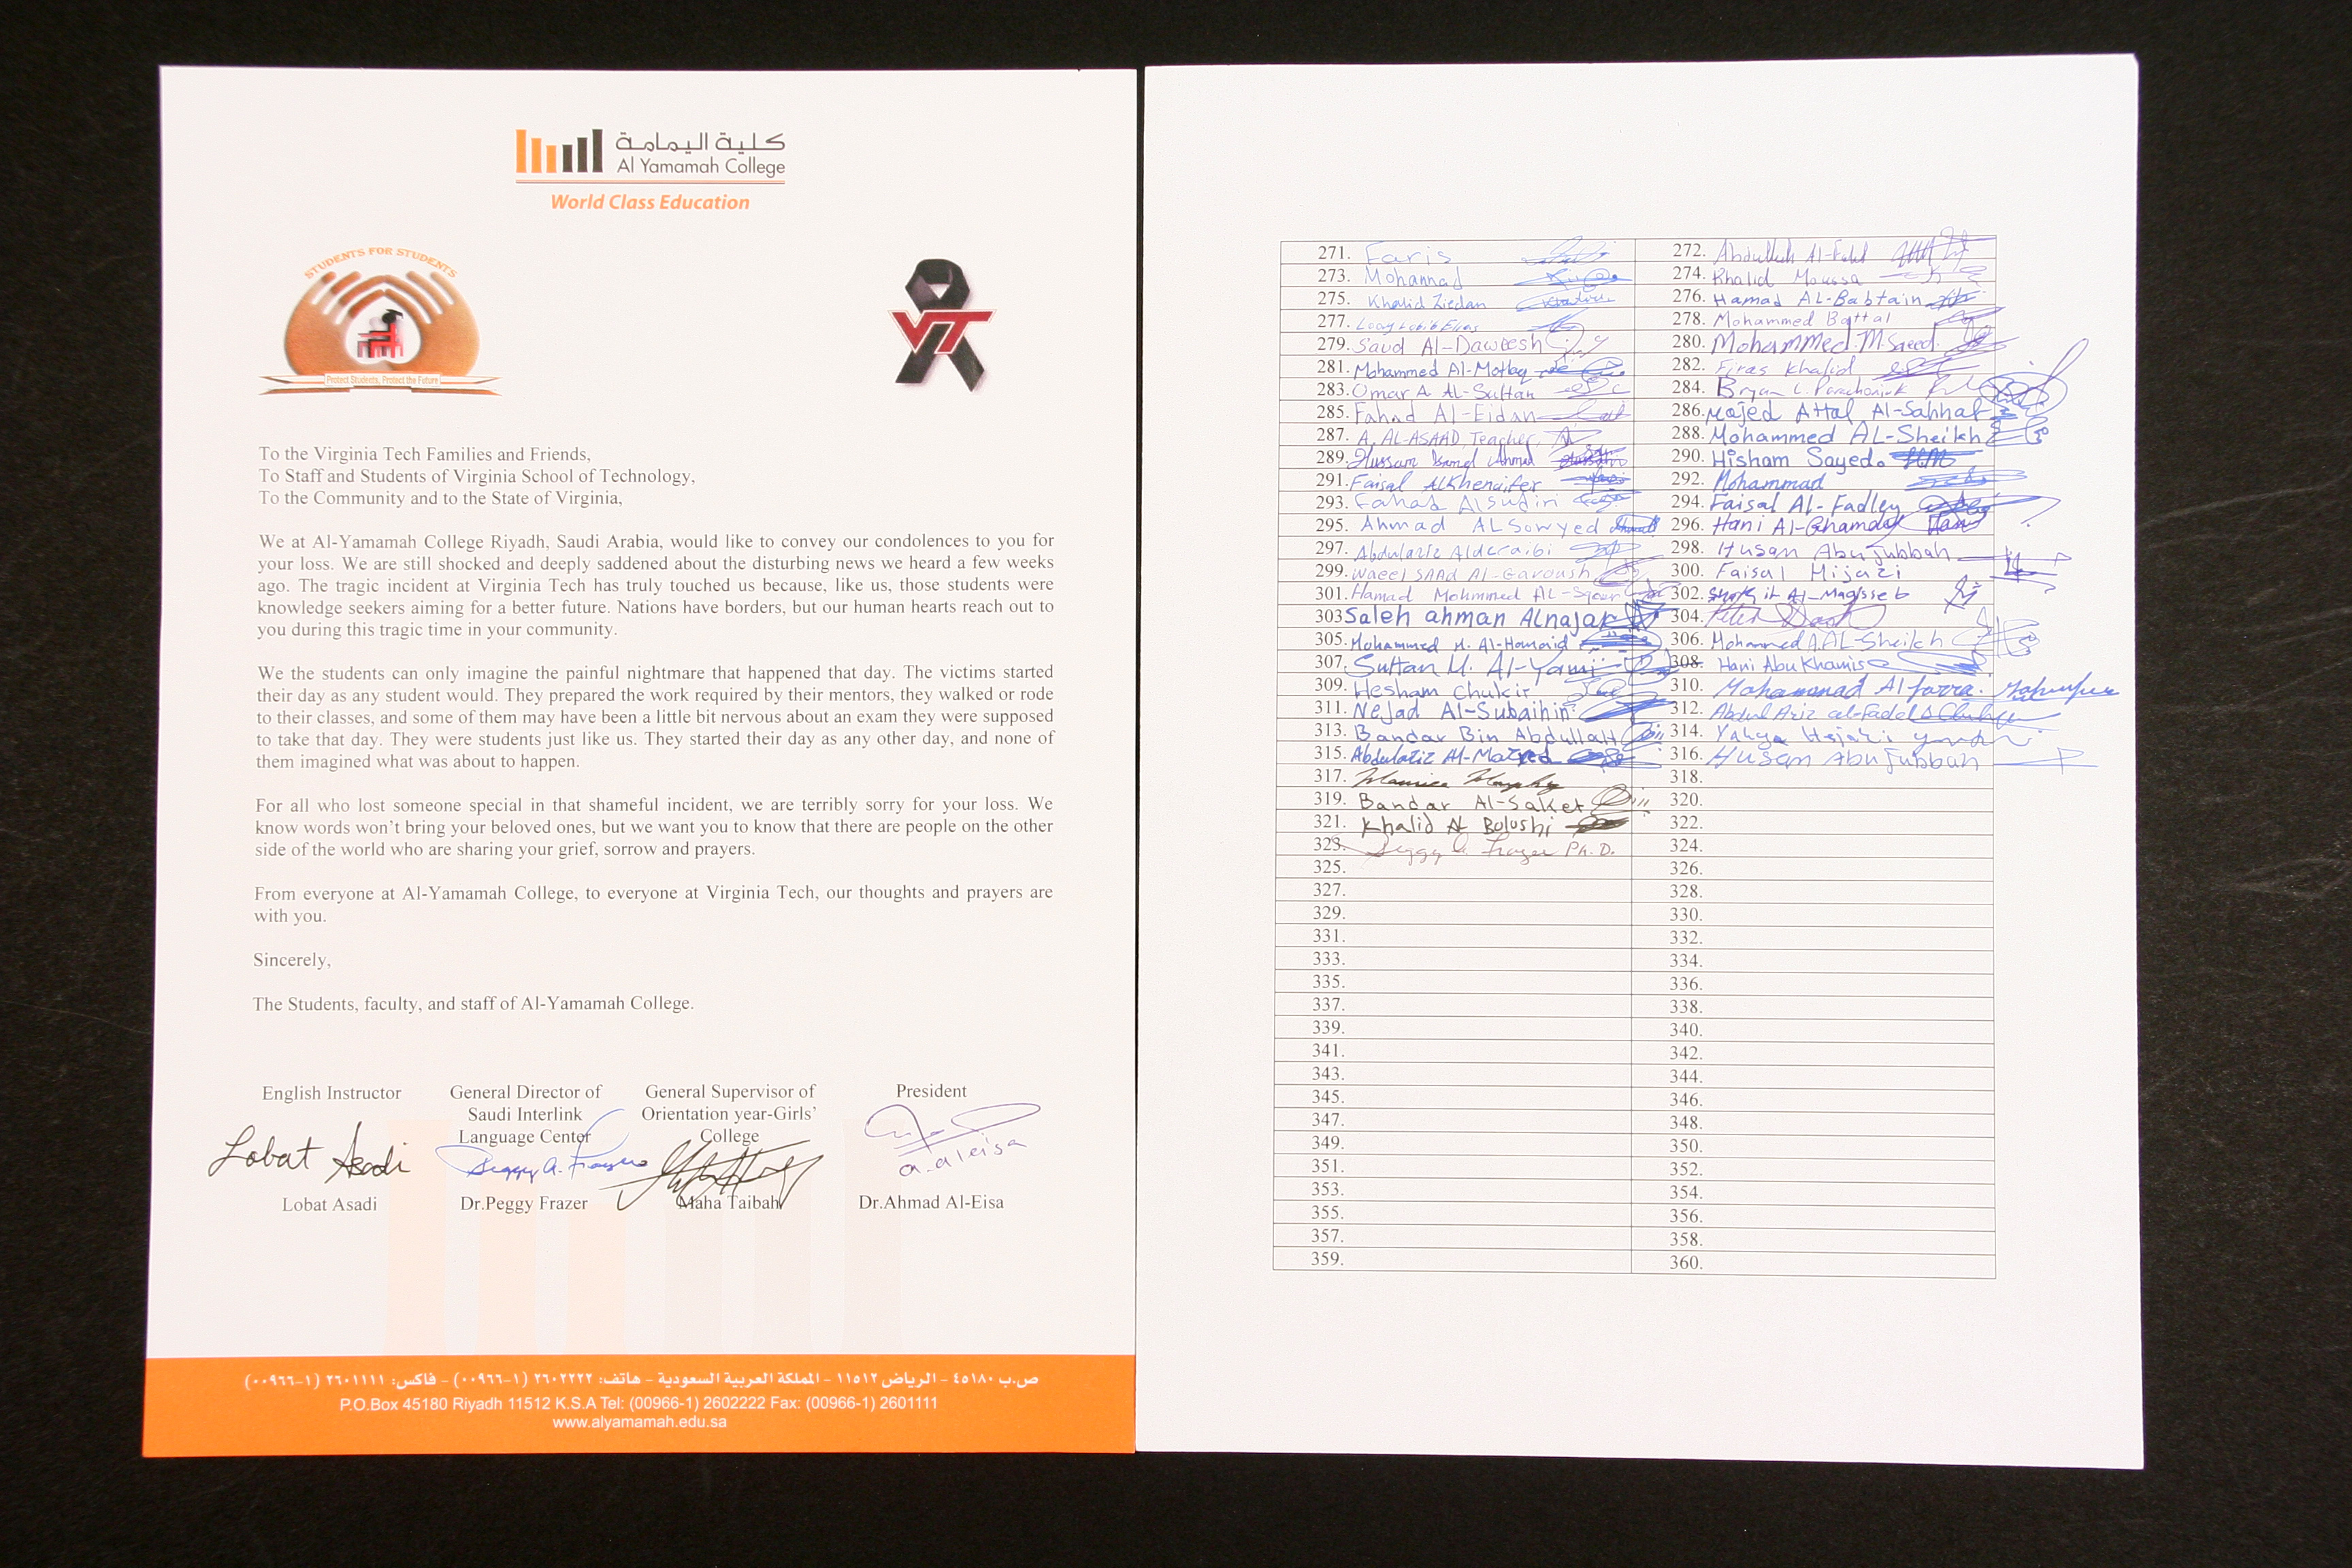 كلية اليمامة
Al Yamamah College
World Class Education
STUDENTS FOR STUDENTS
Protect Students, Protect the Future
VT
To the Virginia Tech Families and Friends,
To Staff and Students of Virginia School of Technology,
To the Community and to the State of Virginia,
We at Al-Yamamah College Riyadh, Saudi Arabia, would like to convey our condolences to you for
your loss. We are still shocked and deeply saddened about the disturbing news we heard a few weeks
ago. The tragic incident at Virginia Tech has truly touched us because, like us, those students were
knowledge seekers aiming for a better future. Nations have borders, but our human hearts reach out to
you during this tragic time in your community.
We the students can only imagine the painful nightmare that happened that day. The victims started
their day as any student would. They prepared the work required by their mentors, they walked or rode
to their classes, and some of them may have been a little bit nervous about an exam they were supposed
to take that day. They were students just like us. They started their day as any other day, and none of
them imagined what was about to happen.
For all who lost someone special in that shameful incident, we are terribly sorry for your loss. We
know words won't bring your beloved ones, but we want you to know that there are people on the other
side of the world who are sharing your grief, sorrow and prayers.
From everyone at Al-Yamamah College, to everyone at Virginia Tech, our thoughts and prayers are
with you.
Sincerely,
The Students, faculty, and staff of Al-Yamamah College.
English Instructor
Lobat Asadi
Lobat Asadi
General Director of
Saudi Interlink
Language Center
Peggy A. Frazer
Dr.Peggy Frazer
General Supervisor of
Orientation year-Girls'
College
Maha Taibah
President
a.aleisa
Dr.Ahmad Al-Eisa
ص.ب ٤٥١٨٠ - الرياض ١١٥١٢ - المملكة العربية السعودية - هاتف: ٢٦٠٢٢٢٢ (١-٠٠٩٦٦) - فاكس: ٢٦٠١١١١ (١-٠٠٩٦٦)
P.O.Box 45180 Riyadh 11512 K.S.A Tel: (00966-1) 2602222 Fax: (00966-1) 2601111
www.alyamamah.edu.sa
271. Faris 272. Abdullah
273. Mohannad 274. Khalid Moussa
275. Khalid Ziedan 276. Hamad AL-Babtain
277. 278. Mohammed Battal
279. Saud Al-Daweesh 280. Mohammed.M.Saeed.
281. Mohammed Al-Motbq 282. Firas Khalid
283. Omar A AL-Sultan 284. Bryan L.
285. Fahad Al-Eidan 286. Majed Attal Al-Sahhaf
287. A. AL-ASAAD, Teacher 288. Mohammed AL-Sheikh
289. Hussam Ahmad 290. Hisham Sayed.
291. Faisal AlKheneifer 292. Mohammad
293. Fahad Alsudiri 294. Faisal Al-Fadley
295. Ahmad ALSowyed 296. Hani Al-Ghamdy
297. Abdulaziz Alderaibi 298. Husam Abu Jubbah
299. Waeel SAAd Al-Garoush 300. Faisal Hijazi
301. Hamad Mohmmed 302. Al-Magsseb
303 Saleh ahman Alnajar 304. Peter
305. Mohammed M. Al-Homaid 306. Mohammed A.AL-Sheikh
307. Sultan M. Al-Yami 308. Hani Abu Khamis
309. Hesham Chukir 310. Mohammad Alfarra.
311. Nejad Al-Subaihin 312. Abdul Aziz al-Fadel
313. Bandar Bin Abdullah 314. Yahya Hejazi
315. Abdulaziz 316. Husam Abu Jubbah
317. Maurice Murphy 318.
319. Bandar Al-Saket 320.
321. Khalid Al Bolushi 322.
323. Peggy A. Frazer Ph.D. 324.
325. 326.
327. 328.
329. 330.
331. 332.
333. 334.
335. 336.
337. 338.
339. 340.
341. 342.
343. 344.
345. 346.
347. 348.
349. 350.
351. 352.
353. 354.
355. 356.
357. 358.
359. 360.